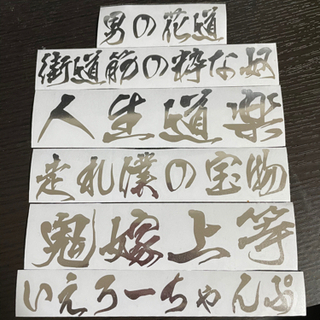 男の花道
街道筋の粋な奴
人生道楽
走れ僕の宝物
鬼嫁上等
いえろーちゃんぷ